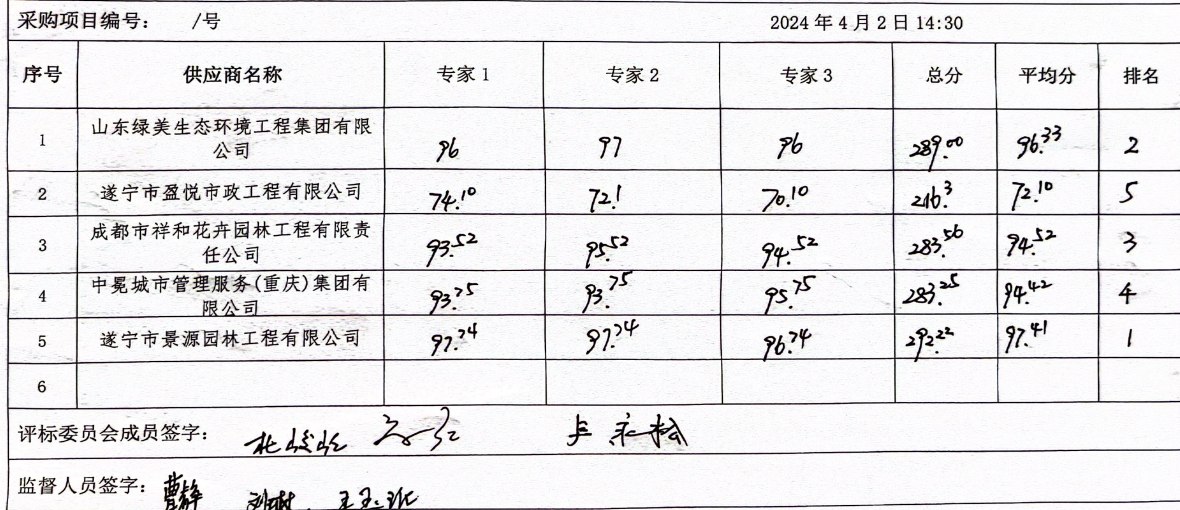 采购项目编号： /号 2024年4月2日14:30
序号 供应商名称 专家1 专家2 专家3 总分 平均分 排名
1 山东绿美生态环境工程集团有限公司 96 97 96 289.00 96.33 2
2 遂宁市盈悦市政工程有限公司 74.10 72.1 70.10 216.3 72.10 5
3 成都市祥和花卉园林工程有限责任公司 93.52 95.52 94.52 283.56 94.52 3
4 中冕城市管理服务(重庆)集团有限公司 93.75 93.75 95.75 283.25 94.42 4
5 遂宁市景源园林工程有限公司 97.74 97.74 96.74 292.22 97.41 1
6
评标委员会成员签字：
监督人员签字： 曹静